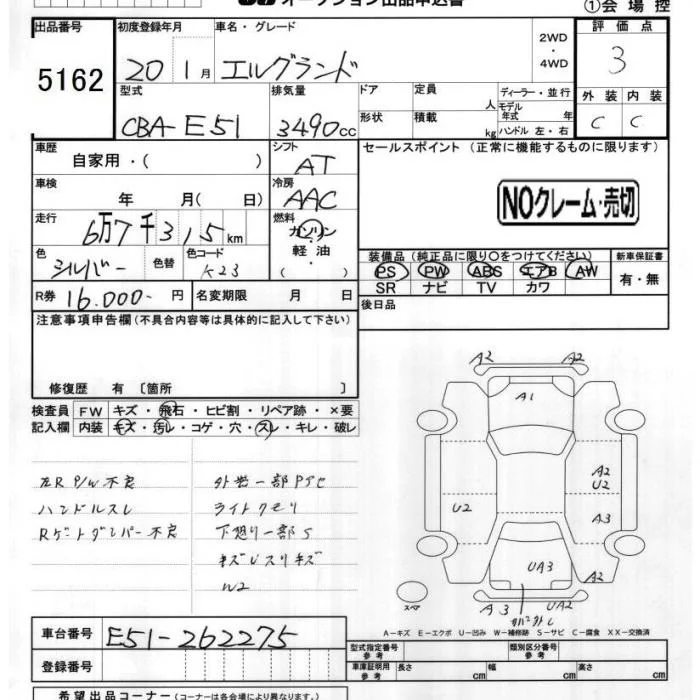 オークション出品申込書
①会場控
出品番号 初度登録年月 車名・グレード 2WD・4WD 評価点
5162 20 1月 エルグランド 3
型式 排気量 ドア 定員 人 ディーラー・並行 外装 内装
CBA-E51 3490cc 形状 積載 kg モデル年式 年 ハンドル 左・右 C C
車歴 自家用・( ) シフト AT セールスポイント (正常に機能するものに限ります)
車検 年 月( 日) 冷房 AAC NOクレーム・売切
走行 6万7千315km 燃料 ガソリン 軽油・( )
色 シルバー 色替 色コード K23 装備品(純正品に限り〇をつけてください) 新車保証書
PS PW ABS エアB AW 有・無
SR ナビ TV カワ
R券 16.000- 円 名変期限 月 日 後日品
注意事項申告欄(不具合内容等は具体的に記入して下さい)
修復歴 有 〔箇所 〕
検査員 FW キズ・飛石・ヒビ割・リペア跡・×要
記入欄 内装 キズ・汚レ・コゲ・穴・スレ・キレ・破レ
左R P/W不良
ハンドルスレ
Rゲートダンパー不良
外装一部Pアセ
ライトクモリ
下廻り一部S
キズひスリキズ
W2
A2 A2
A1
A2
U2
U2
A3
UA3
A2
スペア
A3 UA2
A-キズ E-エクボ U-凹み W-補修跡 S-サビ C-腐食 XX-交換済
車台番号 E51-262275
登録番号
型式指定番号 参考 類別区分番号 参考
車庫証明用 参考 長さ cm 幅 cm 高さ cm
希望出品コーナー(コーナーは各会場により異なります。)